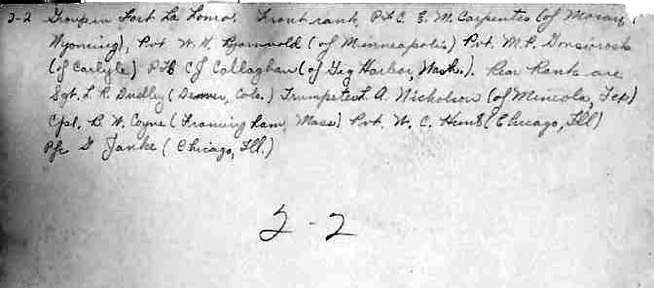 2-2 Group in Fort La Loma, Front rank, Pfc. E. M. Carpenter (of
Wyoming), Pvt. W. H. (of Minneapolis) Pvt. M. P.
(of Carlyle) Pfc C J Callaghan (of Gig Harbor, Wash.). Rear Rank are
Sgt. L R Dudley (Denver, Colo.) Trumpeter L. A. Nicholson (of Mineola, Tex)
Cpl. B W. Coyne (Framingham, Mass) Pvt. W. C. Hunt (Chicago, Ill)
Pfc G Janke (Chicago, Ill.)
2-2